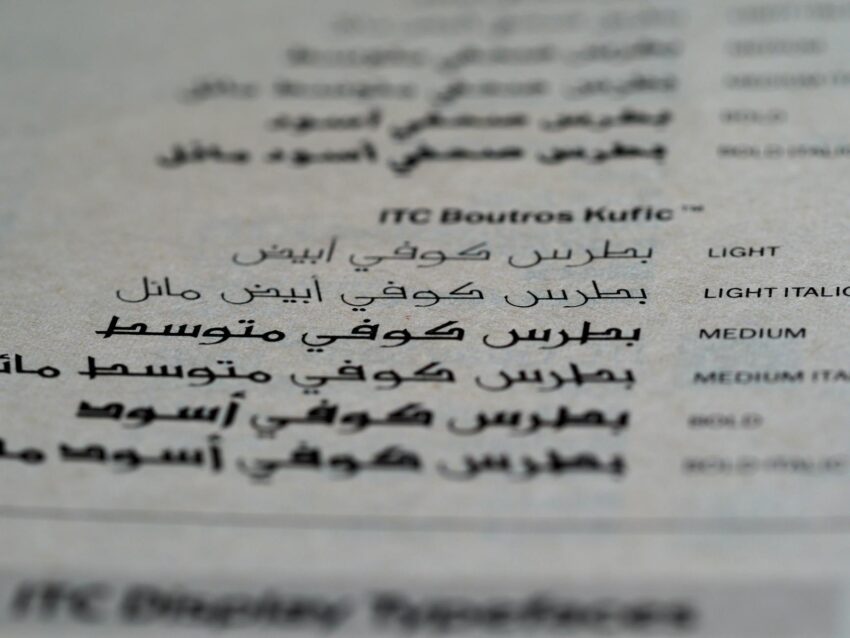 بطرس صحفي أسود BOLD
بطرس صحفي أسود مائل BOLD ITALIC
ITC Boutros Kufic ™
بطرس كوفي أبيض LIGHT
بطرس كوفي أبيض مائل LIGHT ITALIC
بطرس كوفي متوسط MEDIUM
بطرس كوفي متوسط مائ MEDIUM ITA
بطرس كوفي أسود BOLD
بطرس كوفي أسود ما BOLD ITALIC
ITC Display Typefaces